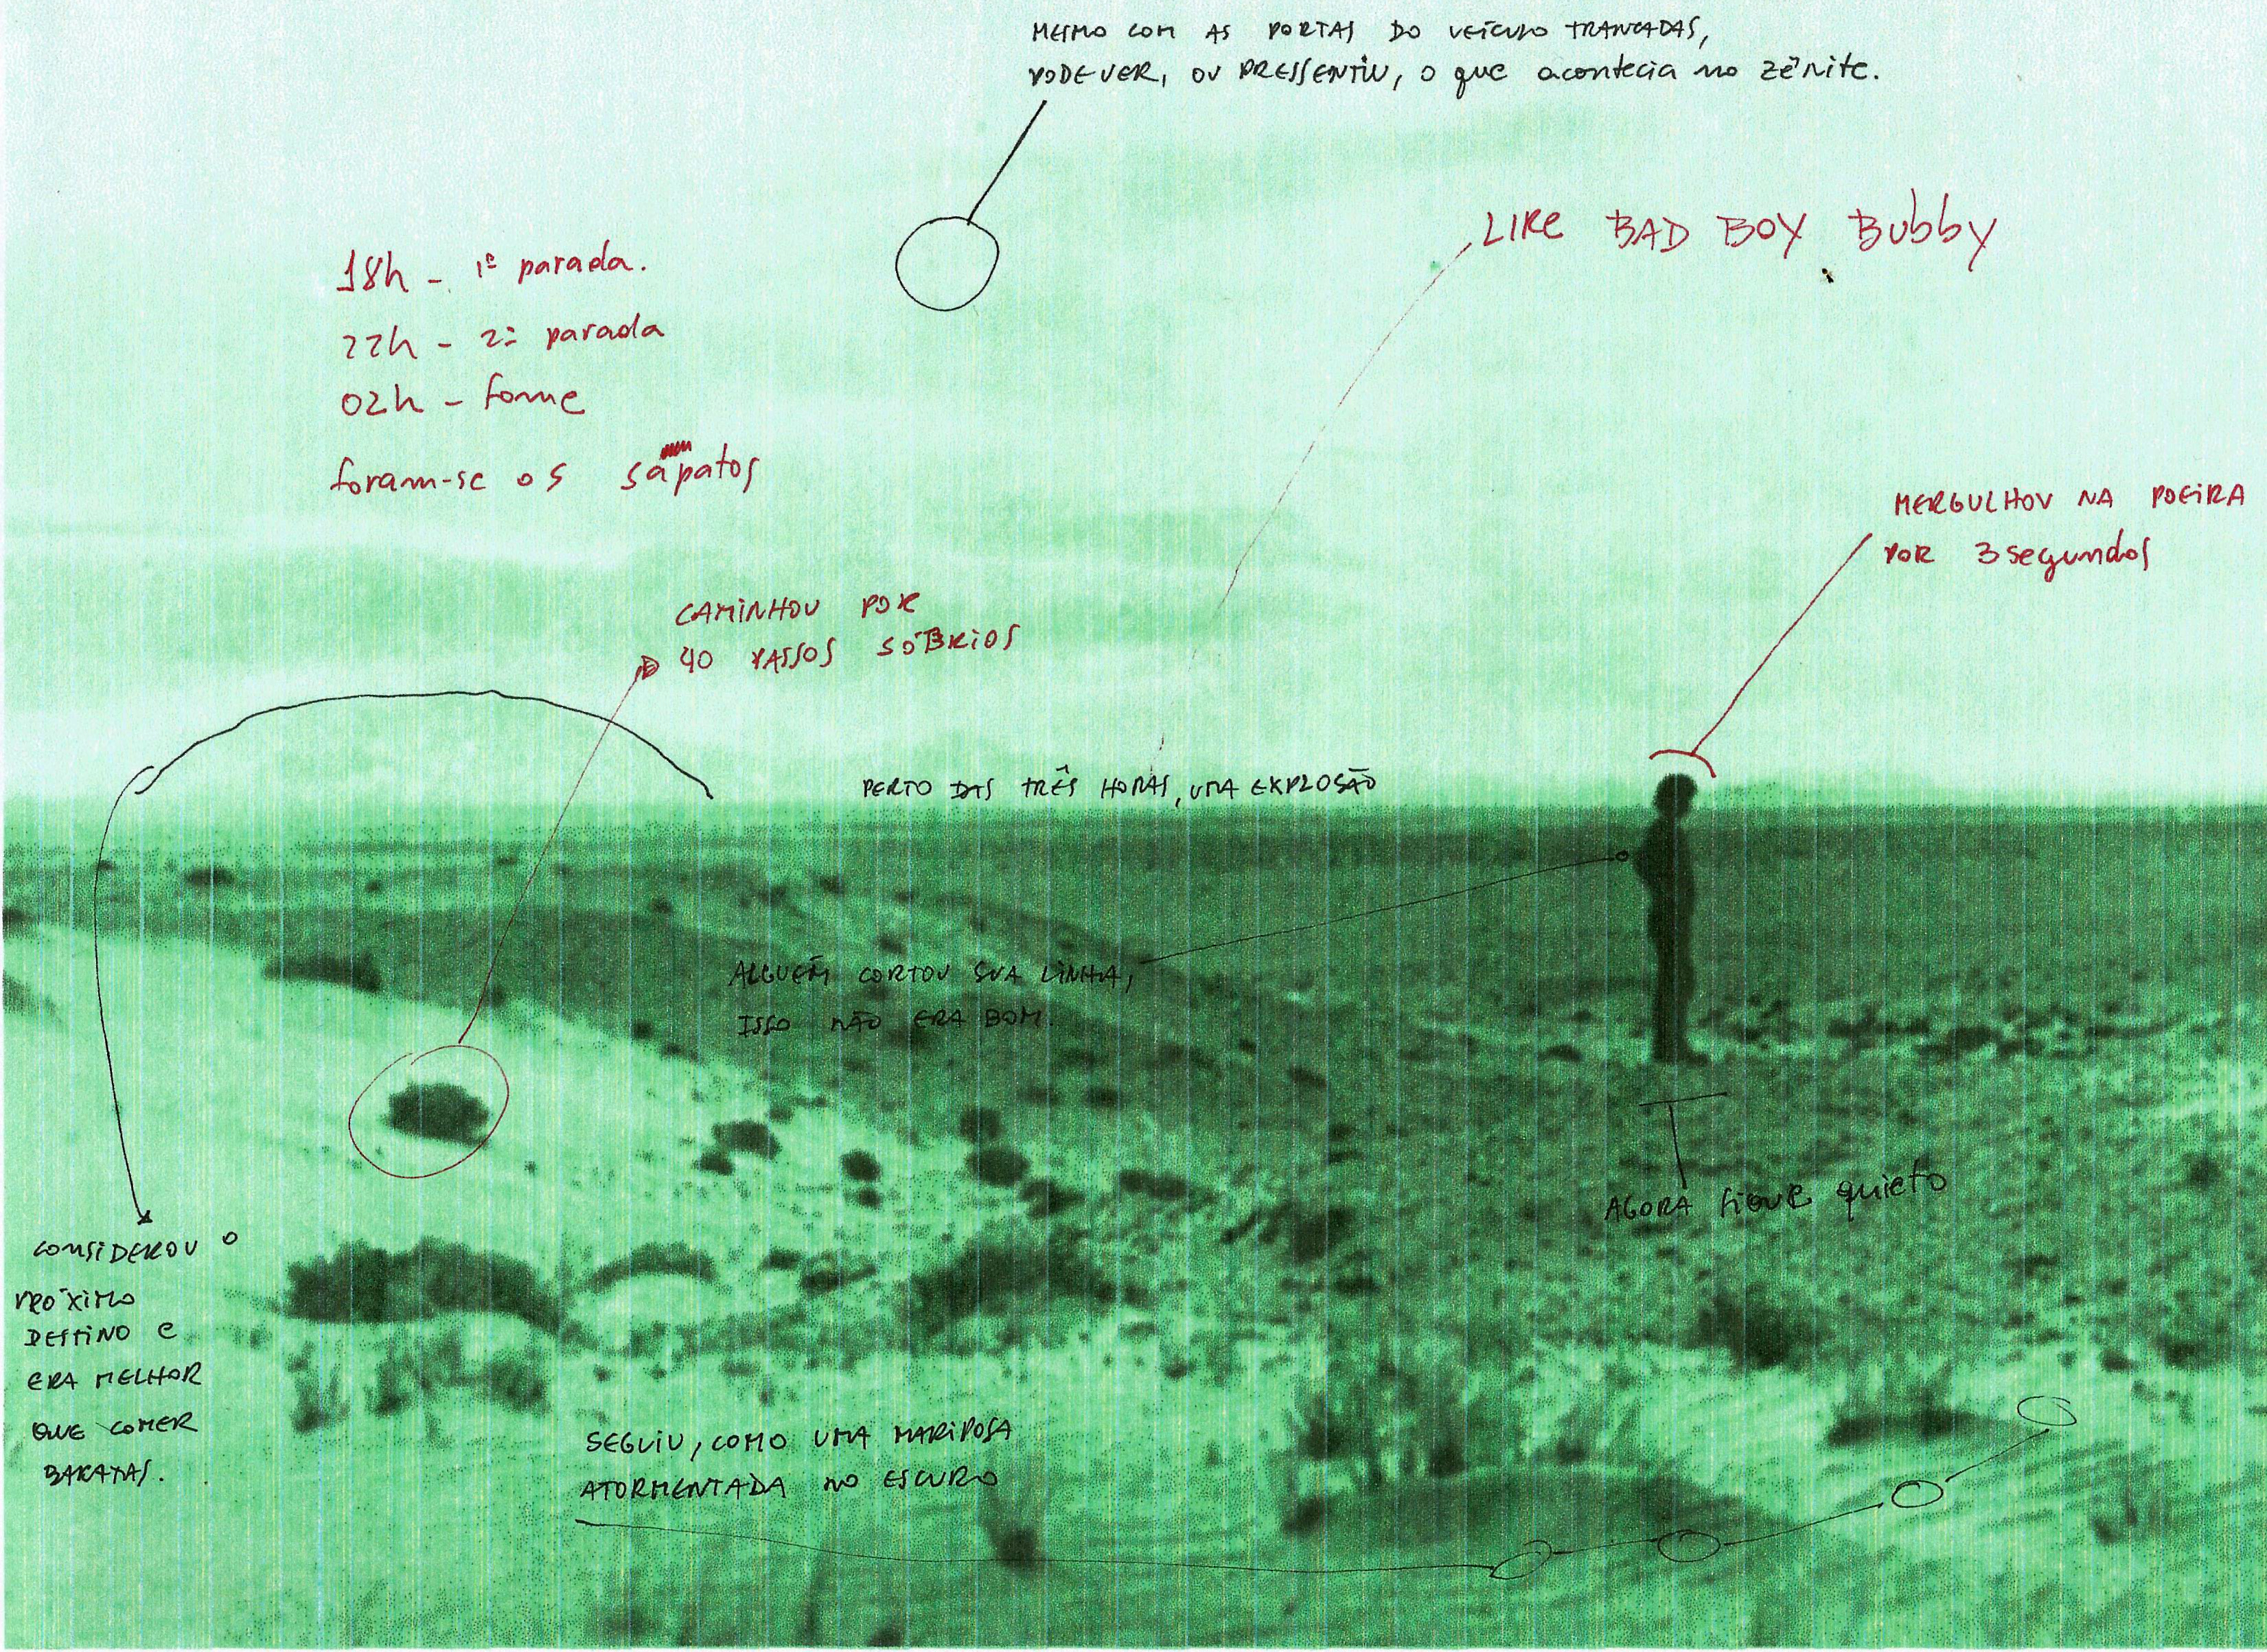 MESMO COM AS PORTAS DO VEÍCULO TRANCADAS,
PODE VER, OU PRESSENTIU, O que acontecia no zênite.
LIKE BAD BOY Bubby
18h - 1ª parada.
22h - 2ª parada
02h - fome
foram-se os sapatos
MERGULHOU NA POEIRA
POR 3 segundos
CAMINHOU POR
40 PASSOS SÓBRIOS
PERTO DAS TRÊS HORAS, UMA EXPLOSÃO
ALGUÉM CORTOU SUA LINHA,
ISSO NÃO ERA BOM.
AGORA FIQUE quieto
CONSIDEROU O
PRÓXIMO
DESTINO E
ERA MELHOR
QUE COMER
BARATAS.
SEGUIU, COMO UMA MARIPOSA
ATORMENTADA NO ESCURO